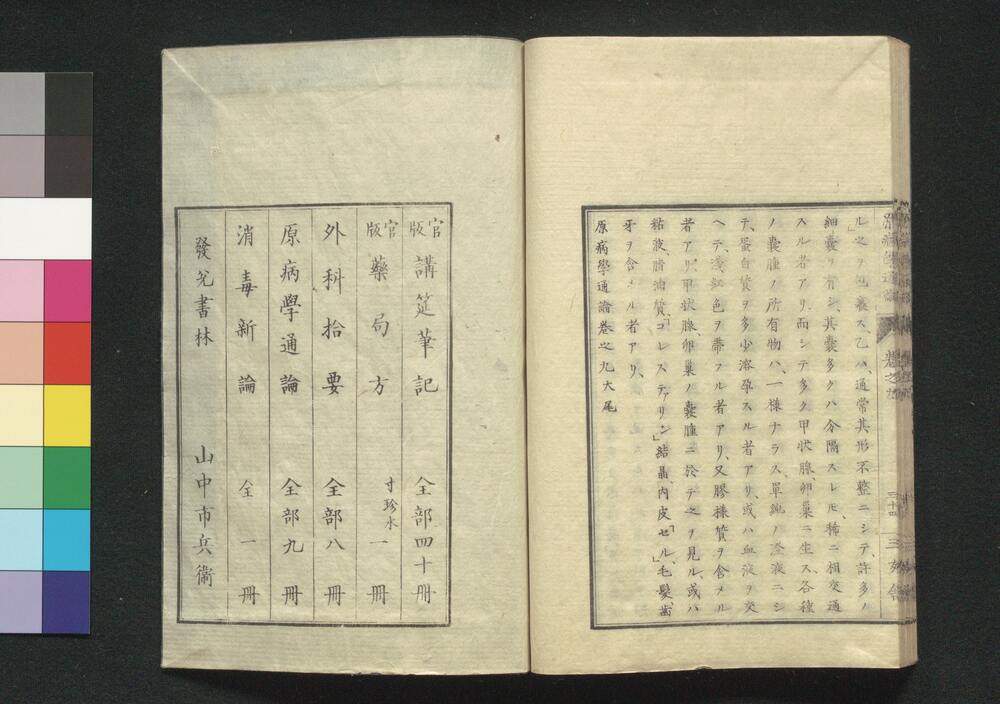 ル」之ヲ包裹ス、乙ハ、通常其形不整ニシテ、許多ノ
細囊ヲ有シ、其囊多クハ分隔スレ𪜈、稀ニ相交通
スル者アリ、而シテ多ク甲状腺、卵巢ニ生ス、各種
ノ囊腫ノ所有物ハ、一様ナラス、單純ノ澄液ニシ
テ、蛋白質ヲ多少溶孕スル者アリ、或ハ血液ヲ交
ヘテ、淺紅色ヲ帶フル者アリ、又膠様質ヲ含メル
者アリ、甲状腺、卵巢ノ囊腫ニ於テ之ヲ見ル、或ハ
粘液、脂油質、「コレステアリン」結晶、内皮「セル」、毛髮、齒
牙ヲ含メル者アリ、
原病學通論卷之九大尾
官版 講筵筆記 全部四十冊
官版 藥局方 寸珍本一冊
外科拾要 全部八冊
原病學通論 全部九冊
消毒新論 全一冊
發兌書林 山中市兵衞